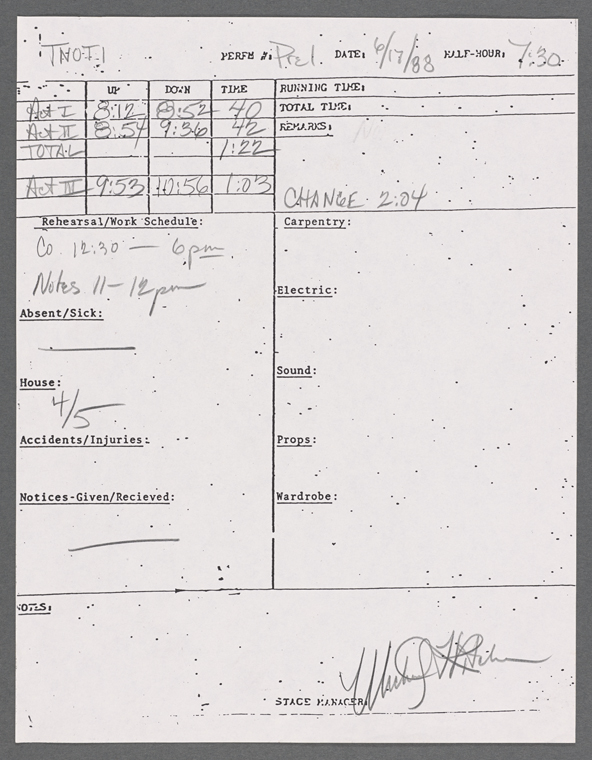 TNOTI PERFM #: Prel. DATE: 6/17/88 HALF-HOUR: 7:30
UP DOWN TIME
Act I 8:12 8:52 40
Act II 8:54 9:36 42
TOTAL 1:22
Act III 9:53 10:56 1:03
RUNNING TIME:
TOTAL TIME:
REMARKS:
CHANGE 2:04
Rehearsal/Work Schedule:
Co. 12:30 — 6pm
Notes 11-12pm
Absent/Sick:
House:
4/5
Accidents/Injuries:
Notices-Given/Recieved:
Carpentry:
Electric:
Sound:
Props:
Wardrobe:
NOTES:
STAGE MANAGER